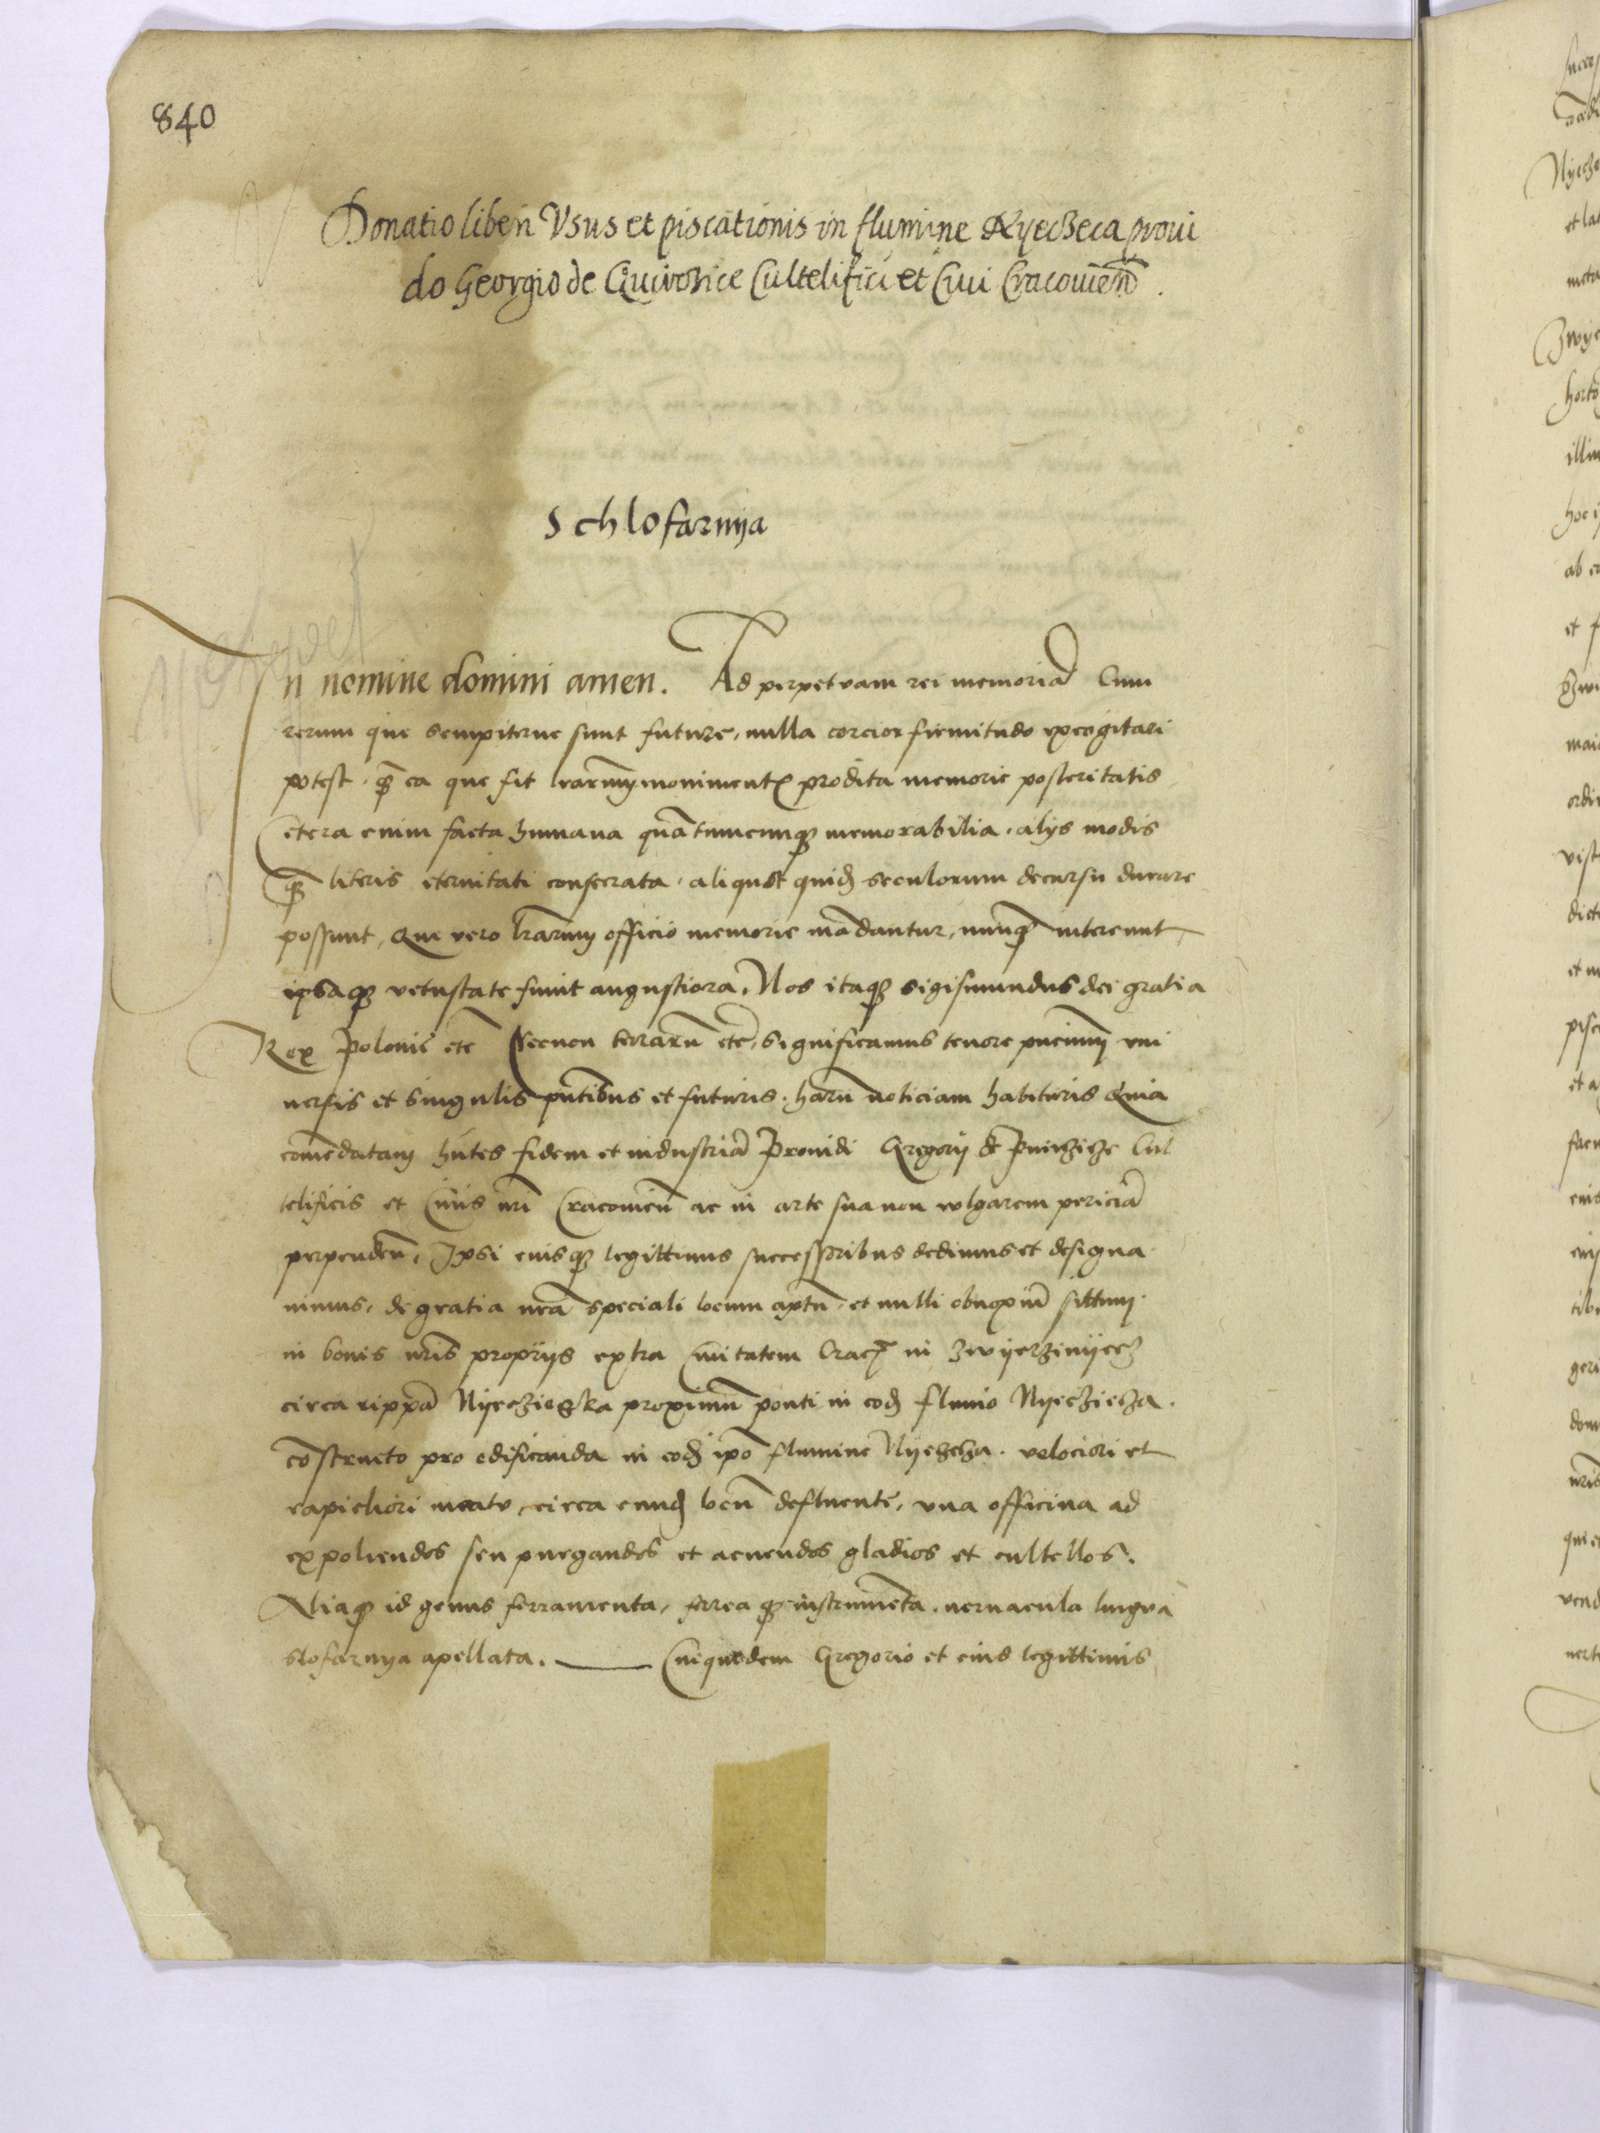 840
Donatio liberi Vsus et piscationis in flumine Nyeczeca proui
do Georgio de Cultelifici et Ciui Cracouien̄.
Schlofarnya
In nomine domini amen. Ad perpetuam rei memoriā Cum
rerum que sempiterne sunt future, nulla corcior firmitudo excogitari
potest. q̄ ea que fit lrarum monimentꝭ prodita memorie posteritatis
Cetera enim facta humana quātumcunqꝫ memorabilia. alijs modis
q̄ literis eternitati consecrata. aliquot quidē seculorum decursu durare
possunt, Que vero lrarum officio memorie mādantur, nunq̄ intereunt,
ipsaqꝫ vetustate fiunt angustiora. Nos itaqꝫ Sigismundus dei gratia
Rex Polonie etc̄ Necnon terrarū etc̄, significamus tenore pn̄cium vni
uersis et singulis pn̄tibus et futuris. harū noticiam habituris Quia
comēdatam hn̄tes fidem et industriā Prouidi Gregorij de Cul
telificis et Ciuis nr̄i Cracouien̄ ac in arte sua non wlgarem periciā
perpenden̄, Ipsi eiusqꝫ legittimis successoribus dedimus et designa
uimus, de gratia nr̄a speciali locum aptū et nulli obnoxiū sittum
in bonis nr̄is proprijs extra Ciuitatem Crac̄ in Zwyerzinyecz
circa rippā proximū ponti in eodē fluuio Nyecziecza.
cōstructo pro edificanda in eodē ipō flumine Nyeczcza. velociori et
rapiciori meatu, circa eundē locū defluente, vna officina ad
expoliendos seu purgandos et acuendos gladios et cultellos.
Aliaqꝫ id genus ferramenta, ferrea qꝫ instrumēta. vernacula lingua
slofarnya apellata. Cuiquedem Gregorio et eius legittimis